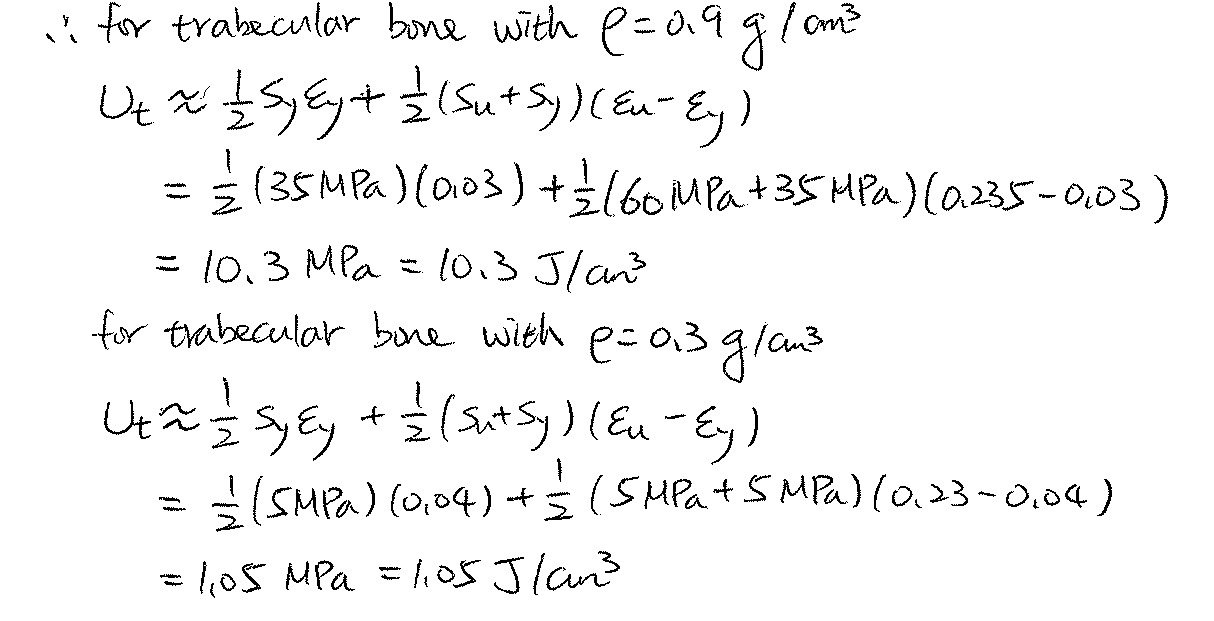 ∴ for trabecular bone with ρ=0.9 g/cm³
Ut ≈ 1/2 SyEy + 1/2 (Su+Sy)(Eu-Ey)
= 1/2 (35MPa)(0.03) + 1/2 (60MPa+35MPa)(0.235-0.03)
= 10.3 MPa = 10.3 J/cm³
for trabecular bone with ρ=0.3 g/cm³
Ut ≈ 1/2 SyEy + 1/2 (Su+Sy)(Eu-Ey)
= 1/2 (5MPa)(0.04) + 1/2 (5MPa+5MPa)(0.23-0.04)
= 1.05 MPa = 1.05 J/cm³